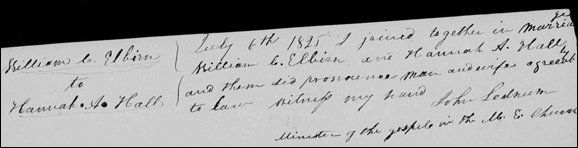 William C. Elbirn
to
Hannah A. Hall
July 6th 1825 I joined together in marriage
William C. Elbirn and Hannah A. Hall
and them did pronounce man and wife agreeably
to law witness my hand John Lednum
Minister of the gospels in the M. E. Church